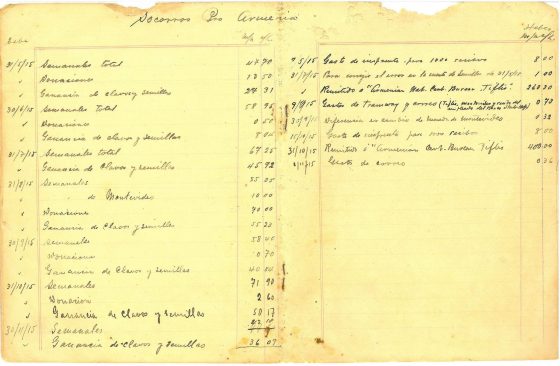 Socorros Pro Armenia
Debe
31/5/15 Semanales total 44 70
" Donaciones 13 50
" Ganancia de clavos y semillas 24 31
30/6/15 Semanales total 58 95
" Donaciones 0 50
" Ganancia de clavos y semillas
31/7/15 Semanales total 67 25
" Ganancia de Clavos y semillas 45 72
31/8/15 Semanales 55 05
" " de Montevideo 10 00
" Donaciones 70 00
" Ganancia de Clavos y semillas 55 33
30/9/15 Semanales 58 40
" Donaciones 0 70
" Ganancia de Clavos y semillas 40 84
31/10/15 Semanales 71 90
" Donacion 2 60
" Ganancia de Clavos y semillas 50 17
30/11/15 Semanales
" Ganancia de Clavos y semillas 36 07
Haber
7/5/15 Gasto de imprenta por 1000 recibos 8 00
31/7/15 Para corregir el error en la cuenta de Semillas de 31/5/15 1 00
" Remitido á "Armenian Nat. Cent. Bureau Tiflis" 260 20
Gastos de Tramway y correo 0 72
Diferencia en cambio de moneda de montevideo 0 32
15/10/15 Gasto de imprenta por 1000 recibos 8 00
31/10/15 Remitido á "Armenian Cent. Bureau Tiflis 400 00
Gastos de correo 0 36